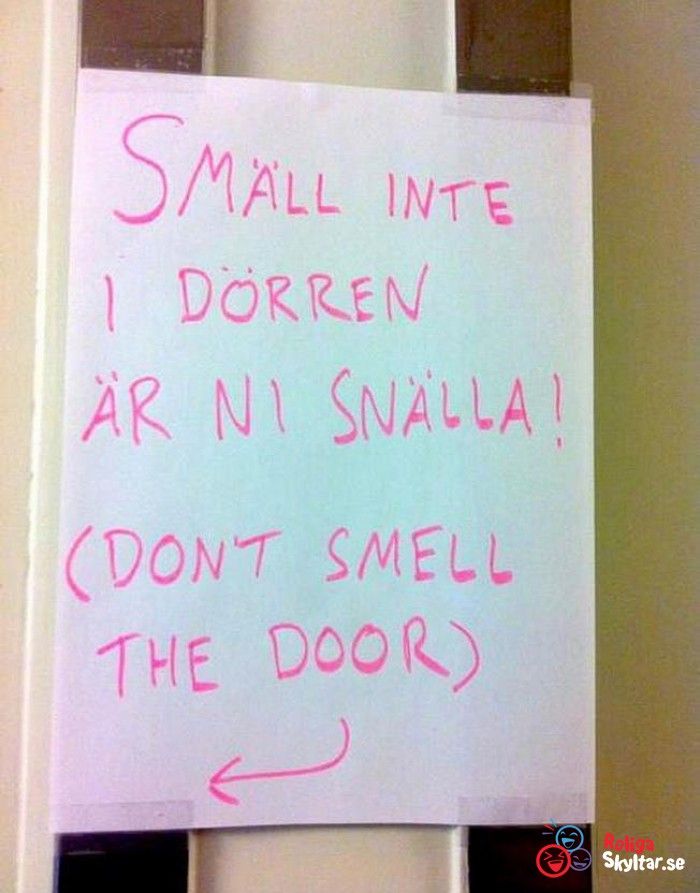 SMÄLL INTE
I DÖRREN
ÄR NI SNÄLLA!
(DON'T SMELL
THE DOOR)
Roliga
Skyltar.se